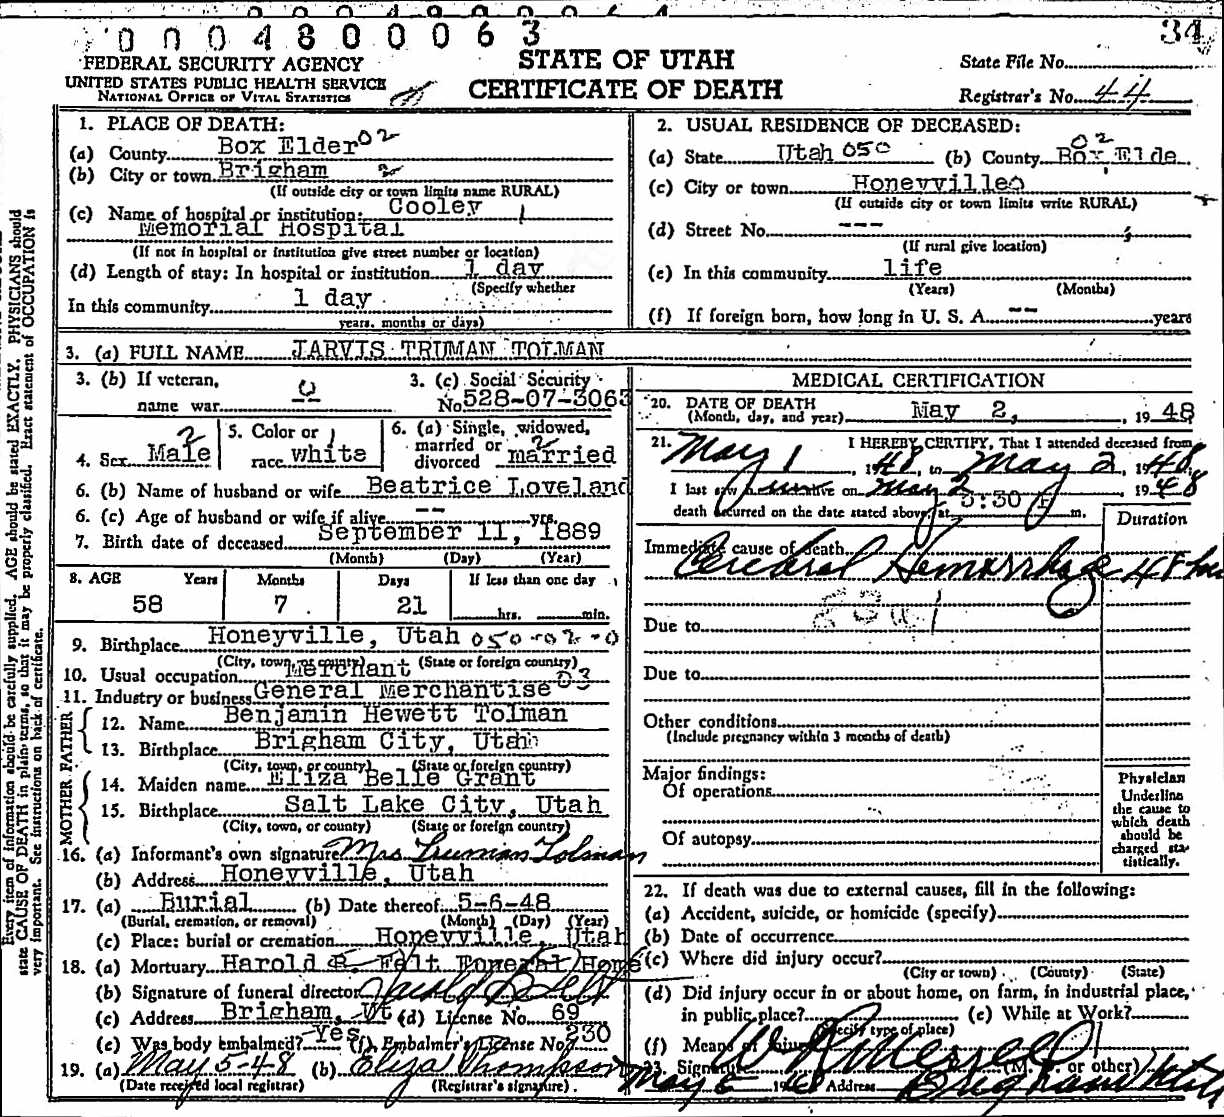 00048000063
34
FEDERAL SECURITY AGENCY
UNITED STATES PUBLIC HEALTH SERVICE
NATIONAL OFFICE OF VITAL STATISTICS
STATE OF UTAH
CERTIFICATE OF DEATH
State File No.
Registrar's No. 44
1. PLACE OF DEATH:
(a) County Box Elder 02
(b) City or town Brigham 2
(If outside city or town limits name RURAL)
(c) Name of hospital or institution: Cooley 1
Memorial Hospital
(If not in hospital or institution give street number or location)
(d) Length of stay: In hospital or institution 1 day
(Specify whether
In this community 1 day
years, months or days)
2. USUAL RESIDENCE OF DECEASED:
(a) State Utah 050 (b) County Box Elde 02
(c) City or town Honeyville 0
(If outside city or town limits write RURAL)
(d) Street No. ---
(If rural give location)
(e) In this community life
(Years) (Months)
(f) If foreign born, how long in U. S. A. -- years
3. (a) FULL NAME JARVIS TRUMAN TOLMAN
3. (b) If veteran, name war 0 --
3. (c) Social Security No. 528-07-3063
4. Sex Male 2
5. Color or race white 1
6. (a) Single, widowed, married or divorced married 2
6. (b) Name of husband or wife Beatrice Loveland
6. (c) Age of husband or wife if alive -- yrs.
7. Birth date of deceased September 11, 1889
(Month) (Day) (Year)
8. AGE Years Months Days If less than one day
58 7 21 hrs. min.
9. Birthplace Honeyville, Utah 050-02-0
(City, town, or county) (State or foreign country)
10. Usual occupation Merchant 03
11. Industry or business General Merchantise
FATHER
12. Name Benjamin Hewett Tolman
13. Birthplace Brigham City, Utah
(City, town, or county) (State or foreign country)
MOTHER
14. Maiden name Eliza Belle Grant
15. Birthplace Salt Lake City, Utah
(City, town, or county) (State or foreign country)
16. (a) Informant's own signature Mrs Truman Tolman
(b) Address Honeyville, Utah
17. (a) Burial (b) Date thereof 5-6-48
(Burial, cremation, or removal) (Month) (Day) (Year)
(c) Place: burial or cremation Honeyville, Utah
18. (a) Mortuary Harold B. Felt Funeral Home
(b) Signature of funeral director Harold B Felt
(c) Address Brigham, Ut (d) License No. 69
(e) Was body embalmed? Yes (f) Embalmer's License No. 230
19. (a) May 5-48 (b) Eliza Thompson
(Date received local registrar) (Registrar's signature)
MEDICAL CERTIFICATION
20. DATE OF DEATH
(Month, day, and year) May 2, 1948
21. I HEREBY CERTIFY, That I attended deceased from
May 1, 1948, to May 2, 1948
I last saw him alive on May 2 1948
death occurred on the date stated above, at 5:30 P m.
Duration
Immediate cause of death
Cerebral Hemorrhage 48
Due to
Due to
Other conditions
(Include pregnancy within 3 months of death)
Major findings:
Of operations
Of autopsy
Physician
Underline
the cause to
which death
should be
charged sta-
tistically.
22. If death was due to external causes, fill in the following:
(a) Accident, suicide, or homicide (specify)
(b) Date of occurrence
(c) Where did injury occur?
(City or town) (County) (State)
(d) Did injury occur in or about home, on farm, in industrial place,
in public place? (e) While at Work?
(Specify type of place)
(f) Means of injury
23. Signature (M. D. or other)
May Address Brigham Utah
Every item of information should be carefully supplied. AGE should be stated EXACTLY. PHYSICIANS should
state CAUSE OF DEATH in plain terms, so that it may be properly classified. Exact statement of OCCUPATION is
very important. See instructions on back of certificate.